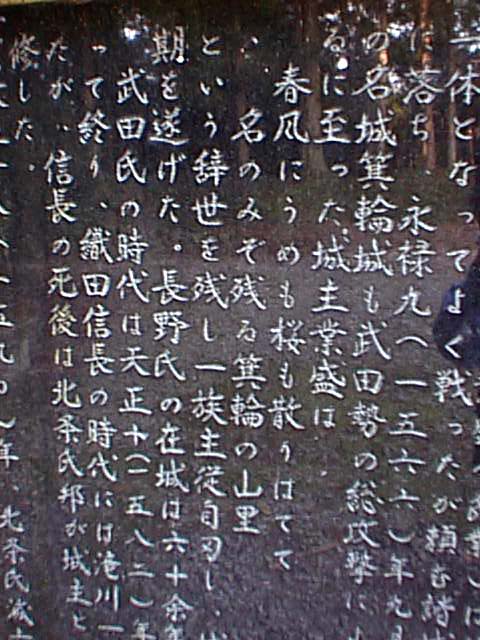 一体となってよく戦ったが頼む
に落ち、永禄九(一五六六)年九
の名城箕輪城も武田勢の総攻撃に
るに至った。城主業盛は、
春風にうめも桜も散りはてて
名のみぞ残る箕輪の山里
という辞世を残し一族主従自刃し、
期を遂げた。長野氏の在城は六十余年
武田氏の時代は天正十(一五八二)年
って終り、織田信長の時代には滝川一
たが、信長の死後は北条氏邦が城主と
修した。
八(一五九〇)年、北条氏滅